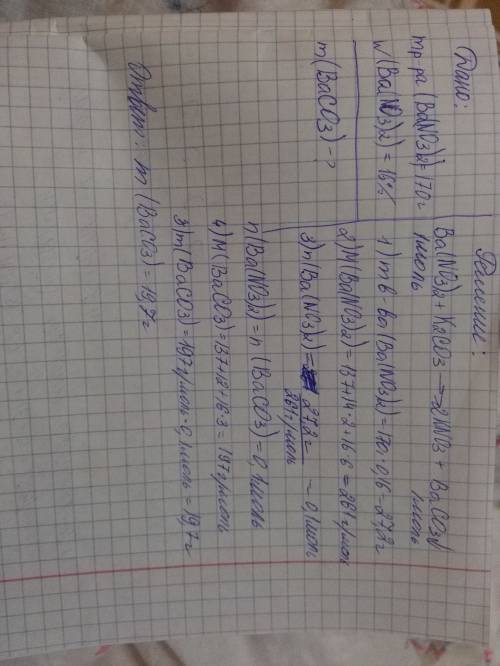 Дано:
mр-ра (Ba(NO3)2 = 170 г
W(Ba(NO3)2) = 16%
m(BaCO3) - ?
Решение:
Ba(NO3)2 + K2CO3 → 2KNO3 + BaCO3↓
1моль 1моль
1) m в-ва (Ba(NO3)2) = 170 · 0,16 = 27,2г
2) M(Ba(NO3)2) = 137+14·2+16·6 = 261 г/моль
3) n(Ba(NO3)2) = 27,2г
261 г/моль = 0,1моль
n(Ba(NO3)2) = n (BaCO3) = 0,1моль
4) M(BaCO3) = 137+12+16·3 = 197 г/моль
3) m(BaCO3) = 197 г/моль · 0,1моль = 19,7г
Ответ: m (BaCO3) = 19,7г